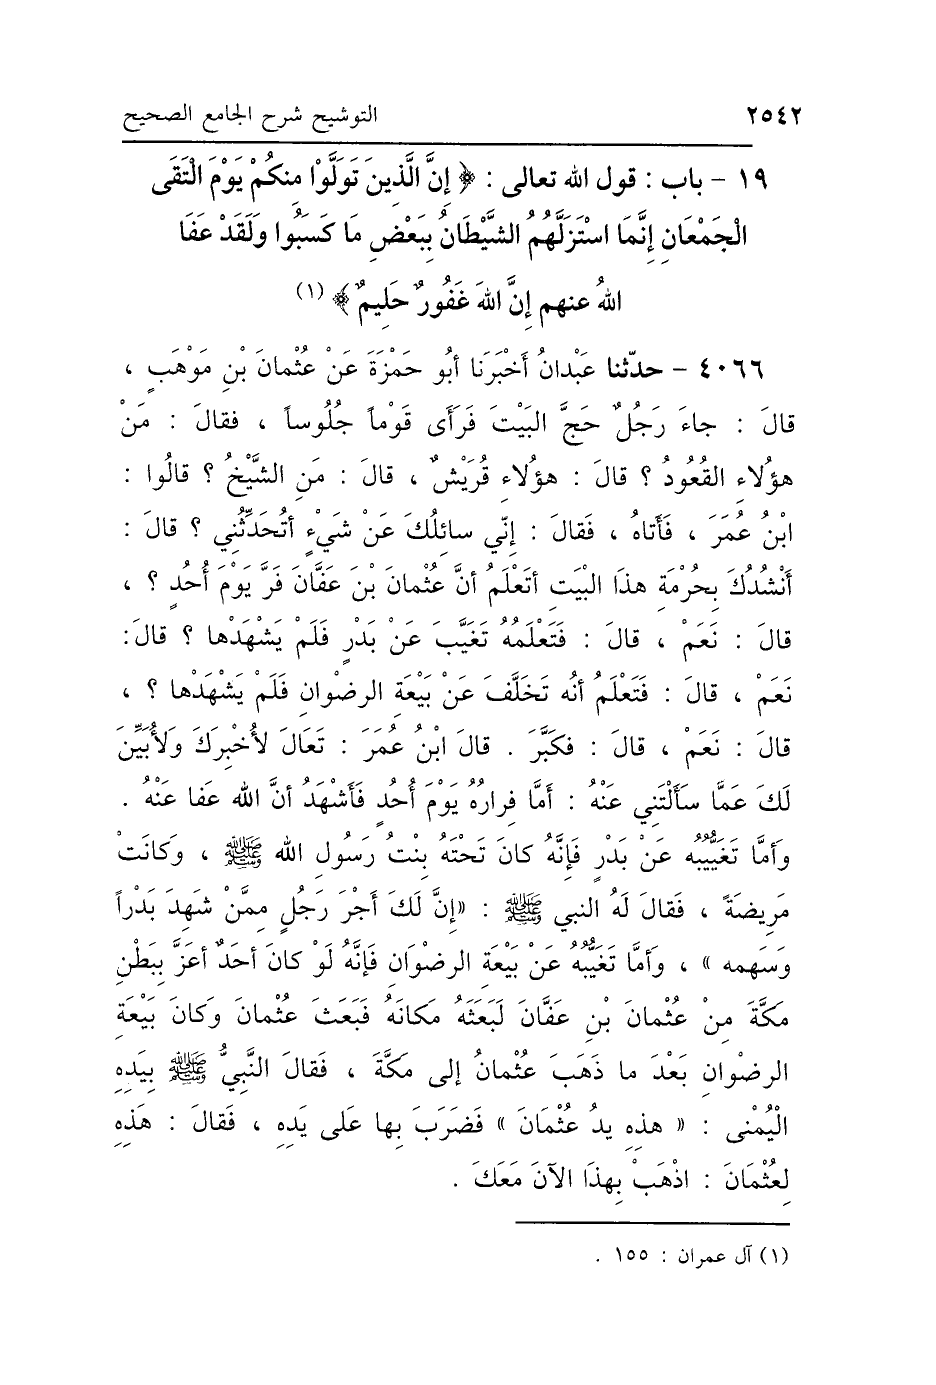 ٢٥٤٢ التوشيح شرح الجامع الصحيح
١٩ - باب : قول الله تعالى : ﴿ إِنَّ الَّذِينَ تَوَلَّوْا مِنكُمْ يَوْمَ الْتَقَى
الْجَمْعَانِ إِنَّمَا اسْتَزَلَّهُمُ الشَّيْطَانُ بِبَعْضِ مَا كَسَبُوا وَلَقَدْ عَفَا
اللهُ عنهم إِنَّ اللهَ غَفُورٌ حَلِيمٌ ﴾ (١)
٤٠٦٦ - حدّثنا عَبْدانُ أَخْبَرَنَا أبُو حَمْزَةَ عَنْ عُثْمانَ بْنِ مَوْهَبٍ ،
قالَ : جاءَ رَجُلٌ حَجَّ البَيْتَ فَرَأَى قَوْماً جُلُوساً ، فقالَ : مَنْ
هؤُلاءِ القُعُودُ ؟ قالَ : هؤُلاءِ قُرَيْشٌ ، قالَ : مَنِ الشَّيْخُ ؟ قالُوا :
ابْنُ عُمَرَ ، فَأَتاهُ ، فَقالَ : إِنّي سائِلُكَ عَنْ شَيْءٍ أَتُحَدِّثُنِي ؟ قالَ :
أَنْشُدُكَ بِحُرْمَةِ هذَا البَيْتِ أَتَعْلَمُ أنَّ عُثْمانَ بْنَ عَفَّانَ فَرَّ يَوْمَ أُحُدٍ ؟ ،
قالَ : نَعَمْ ، قالَ : فَتَعْلَمُهُ تَغَيَّبَ عَنْ بَدْرٍ فَلَمْ يَشْهَدْها ؟ قالَ:
نَعَمْ ، قالَ : فَتَعْلَمُ أنه تَخَلَّفَ عَنْ بَيْعَةِ الرضْوانِ فَلَمْ يَشْهَدْها ؟ ،
قالَ : نَعَمْ ، قالَ : فكَبَّرَ . قالَ ابْنُ عُمَرَ : تَعَالَ لأُخْبِرَكَ وَلأُبَيِّنَ
لَكَ عَمَّا سَأَلْتَنِي عَنْهُ : أمَّا فِرارُهُ يَوْمَ أُحُدٍ فَأَشْهَدُ أنَّ الله عَفا عَنْهُ .
وأمَّا تَغَيُّبُه عَنْ بَدْرٍ فَإِنَّهُ كانَ تَحْتَهُ بِنْتُ رَسُولِ الله ﷺ ، وكَانَتْ
مَرِيضَةً ، فَقالَ لَهُ النبي ﷺ : «إِنَّ لَكَ أَجْرَ رَجُلٍ مِمَّنْ شَهِدَ بَدْراً
وَسَهمه » ، وأمَّا تَغَيُّبُهُ عَنْ بَيْعَةِ الرضْوَانِ فَإِنَّهُ لَوْ كانَ أحَدٌ أعَزَّ بِبَطْنِ
مكَّةَ مِنْ عُثْمانَ بْنِ عَفَّانَ لَبَعَثَه مَكانَهُ فَبَعَثَ عُثْمانَ وكانَ بَيْعَةَ
الرضْوانِ بَعْدَ ما ذَهَبَ عُثْمانُ إلى مَكَّةَ ، فَقالَ النَّبِيُّ ﷺ بِيَدِهِ
الْيُمْنى : « هذهِ يدُ عُثْمانَ » فَضَرَبَ بِها عَلى يَدِهِ ، فَقالَ : هَذِهِ
لِعُثْمَانَ : اذْهَبْ بِهذَا الآنَ مَعَكَ .
(١) آل عمران : ١٥٥ .